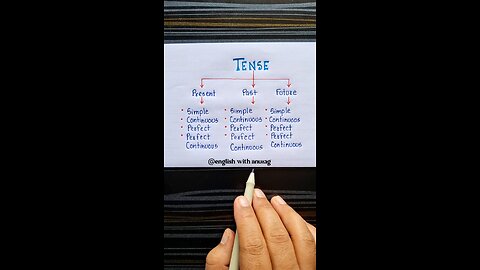 TENSE
Present Past Future
• Simple • Simple • Simple
• Continuous • Continuous • Continuous
• Perfect • Perfect • Perfect
• Perfect • Perfect • Perfect
Continuous Continuous Continuous
@english with anurag